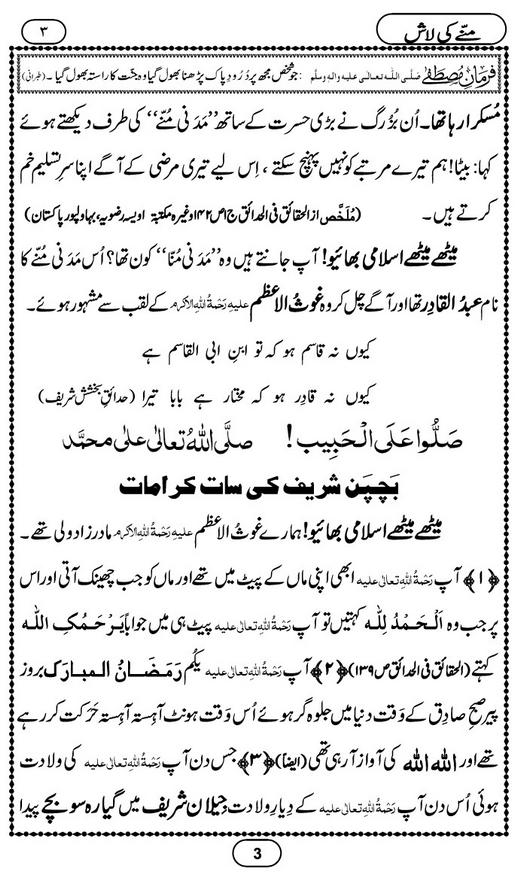 منّے کی لاش
۳
فرمانِ مصطفےٰ صَلَّی اللہ تعالٰی علیہ واٰلہٖ وسلَّم : جو شخص مجھ پر دُرُودِ پاک پڑھنا بھول گیا وہ جنّت کا راستہ بھول گیا ۔ (طبرانی)
مُسکرا رہا تھا۔ اُن بُزُرگ نے بڑی حسرت کے ساتھ ’’مَدَنی مُنّے‘‘ کی طرف دیکھتے ہوئے
کہا: بیٹا! ہم تیرے مرتبے کو نہیں پہنچ سکتے ، اِس لیے تیری مرضی کے آگے اپنا سرِ تسلیم خم
کرتے ہیں۔ (مُلَخَّص از الحقائق فی الحدائق ج۱ ص۱۴۲ وغیرہ مکتبۃ اویسیہ رضویہ، بہاولپور پاکستان)
میٹھے میٹھے اسلامی بھائیو! آپ جانتے ہیں وہ ’’مَدَنی مُنّا‘‘ کون تھا؟ اُس مَدَنی مُنّے کا
نام عبدُ القادِر تھا اور آگے چل کر وہ غوثُ الاعظم علیہ رَحْمَۃُ اللہِ الاکرم کے لقب سے مشہور ہوئے۔
کیوں نہ قاسِم ہو کہ تو ابنِ ابی القاسِم ہے
کیوں نہ قادِر ہو کہ مختار ہے بابا تیرا (حدائقِ بخشش شریف)
صَلُّوا عَلَی الْحَبِیب ! صلَّی اللہُ تعالٰی علٰی محمَّد
بچپَن شریف کی سات کرامات
میٹھے میٹھے اسلامی بھائیو! ہمارے غوثُ الاعظم علیہِ رَحْمَۃُ اللہِ الاکرم مادرزاد ولی تھے۔
﴿۱﴾ آپ رَحْمَۃُ اللہِ تعالٰی علیہ ابھی اپنی ماں کے پیٹ میں تھے اور ماں کو جب چھینک آتی اور اس
پر جب وہ اَلْحَمْدُ لِلّٰہ کہتیں تو آپ رَحْمَۃُ اللہِ تعالٰی علیہ پیٹ ہی میں جواباً یَرْحَمُکِ اللہ
کہتے (الحقائق فی الحدائق ص ۱۳۹) ﴿۲﴾ آپ رَحْمَۃُ اللہِ تعالٰی علیہ یکُم رَمَضانُ المبارَک بروز
پیر صبحِ صادِق کے وَقت دنیا میں جلوہ گر ہوئے اُس وَقت ہونٹ آہِستہ آہِستہ حَرَکت کر رہے
تھے اور اللہ اللہ کی آواز آ رہی تھی (ایضاً) ﴿۳﴾ جس دن آپ رَحْمَۃُ اللہِ تعالٰی علیہ کی ولادت
ہوئی اُس دن آپ رَحْمَۃُ اللہِ تعالٰی علیہ کے دِیارِ ولادت جیلان شریف میں گیارہ سو بچّے پیدا
3